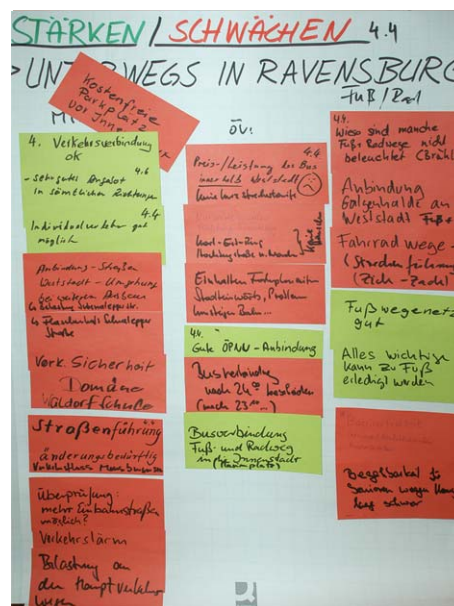 STÄRKEN / SCHWÄCHEN 4.4
> UNTERWEGS IN RAVENSBURG
Kostenfreie
Parkplätze
vor Innen
4. Verkehrsverbindung
ok
4.6
- sehr gutes Angebot
in sämtlichen Richtungen
4.4
Individualverkehr gut
möglich
Anbindung - Straßen
Weststadt - Umgehung
bei weiterem Ausbau
Straße
Verk. Sicherheit
Domäne
Waldorfschule
Straßenführung
änderungsbedürftig
Überprüfung:
mehr Einbahnstraßen
möglich?
Verkehrslärm
Belastung an
den Hauptverkehrs
wegen
ÖV:
4.4
Preis-/Leistung des Bus
innerhalb Weststadt
keine Kurzstreckentarife
Einhalten
Stadtbus
4.4.
Gute ÖPNV-Anbindung
Busverbindung
nach 24°°
(nach 23°°...)
Busverbindung
Fuß- und Radweg
in die Innenstadt
(Marienplatz)
Fuß/Rad
4.4.
Wieso sind manche
Fuß + Radwege nicht
beleuchtet (Brühl
Anbindung
Galgenhalde an
Weststadt Fuß+
Fahrradwege -
(Streckenführung
(Zick-Zack)
Fußwegenetz
gut
Alles wichtige
kann zu Fuß
erledigt werden
Begehbarkeit für
Senioren wegen
schwer